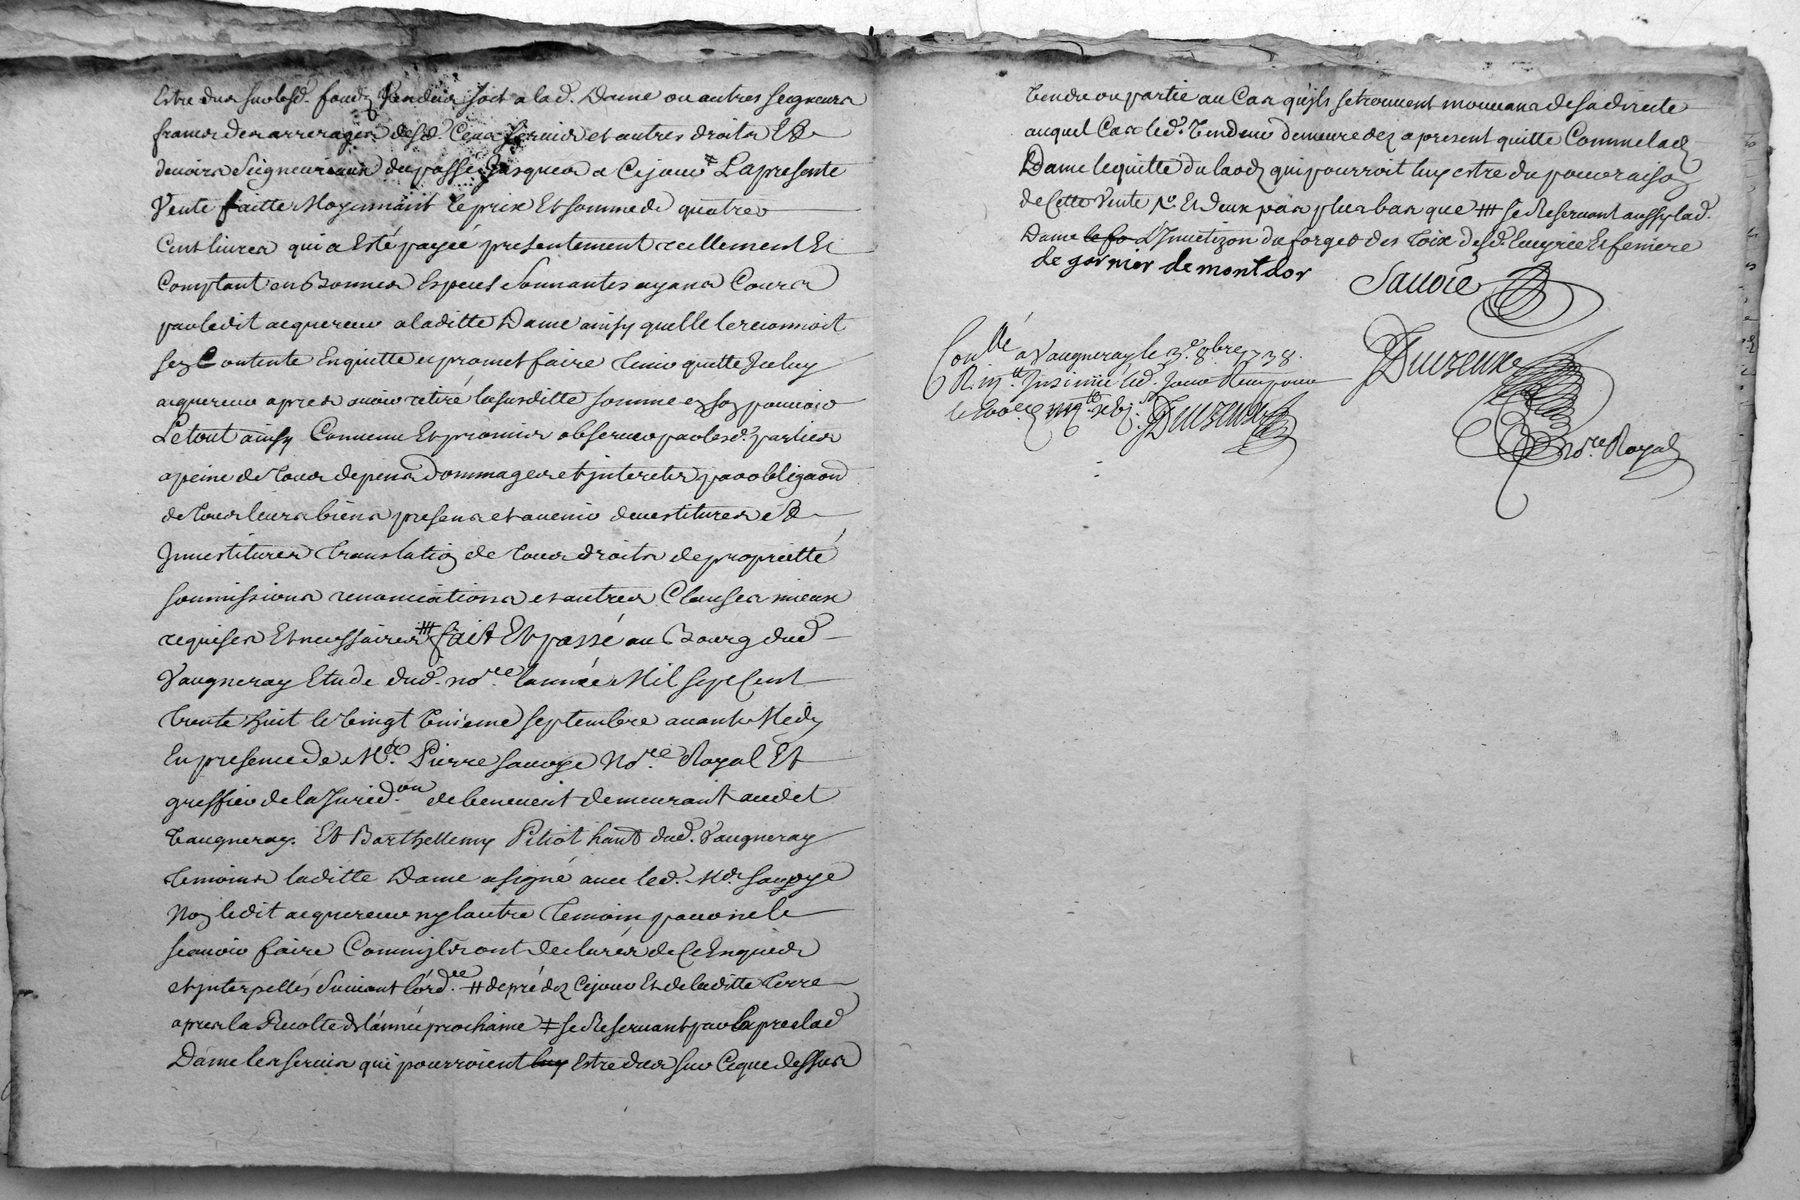 Estre dus sur lesd. fondz Vendus soit a lad. Dame ou autres seigneurs
francs des arrerages desd. Cens servis et autres droits Et
devoirs Seigneuriaux du passé Jusques a Cejour ‡ La presente
Vente faitte Moyennant le prix Et somme de quatre
Cent livres qui a Esté payée presentement reellement Et
Comptant en Bonnes Especes Sonnantes ayans Cours
par ledit acquereur a laditte Dame ainsy quelle le reconnoit
sen Contente Enquitte et promet faire tenir quitte Iceluy
acquereur apres avoir retiré la susditte somme en son pouvoir
Le tout ainsy Convenu Et promis observer par lesd. parties
a peine de tous depens dommages et interets par obligaon
de tous leurs biens presens et avenir devestitures Et
Jnvestitures translation de tous droits de proprietté
soumissions renonciations et autres Clauses mieux
requises Et necessaires ⧻ fait Et passé au Bourg dud.
Vaugneray Etude dud. nore. lannée Mil sept Cent
trente huit le vingt unieme septembre avant Midy
En presence de Me. Pierre sauoye Nore. Royal Et
greffier de la Juridon. de benevent demeurant audit
Vaugneray. Et Barthellemy Pitiot hant dud. Vaugneray
temoins laditte Dame a signé avec led. Me. Sauoye
Non ledit acquereur ny lautre temoin pour ne le
scavoir faire Comm'ils ont declarés de Ce Enquis
et interpellés Suivant l'ordce. # de pré dez Cejour Et de laditte terre
apres la Recolte de l'année prochaine ‡ se Reservant par Exprès lad.
Dame les servis qui pourroient luy Estre dus sur Ceque dessus
Vendu ou partie au Cas qu'ils se trouvent mouvans de sa directe
auquel Cas led. Vendeur demeure dez a present quitte Comme lad.
Dame le quitte du laodz qui pourroit luy estre du pour raison
de Cette Vente Et deux pas plus bas que ⧻ se Reservant aussy lad.
Dame
de garnier de mont dor
Sauoie
Duvzeux
nore. Royal
Conllé a Vaugneray le 3e. 8bre 1738.
Duvzeux